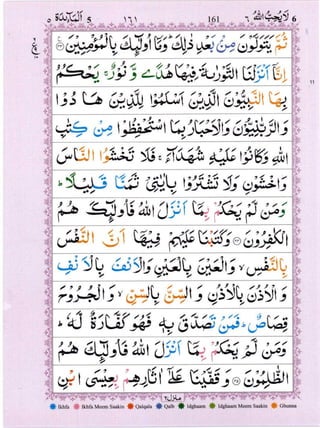 المائدة ٥ 5 ١٦١ 161 لا يحب الله ٦ 6
ثُمَّ يَتَوَلَّوْنَ مِنْ بَعْدِ ذٰلِكَ ؕ وَمَاۤ اُولٰٓئِكَ بِالْمُؤْمِنِيْنَ
اِنَّاۤ اَنْزَلْنَا التَّوْرٰىةَ فِيْهَا هُدًى وَّ نُوْرٌ ۚ يَحْكُمُ
بِهَا النَّبِيُّوْنَ الَّذِيْنَ اَسْلَمُوْا لِلَّذِيْنَ هَادُوْا
وَ الرَّبّٰنِيُّوْنَ وَ الْاَحْبَارُ بِمَا اسْتُحْفِظُوْا مِنْ كِتٰبِ
اللّٰهِ وَ كَانُوْا عَلَيْهِ شُهَدَآءَ ۚ فَلَا تَخْشَوُا النَّاسَ
وَ اخْشَوْنِ وَ لَا تَشْتَرُوْا بِاٰيٰتِيْ ثَمَنًا قَلِيْلًا ؕ
وَ مَنْ لَّمْ يَحْكُمْ بِمَاۤ اَنْزَلَ اللّٰهُ فَاُولٰٓئِكَ هُمُ
الْكٰفِرُوْنَ وَ كَتَبْنَا عَلَيْهِمْ فِيْهَاۤ اَنَّ النَّفْسَ
بِالنَّفْسِ ۙ وَ الْعَيْنَ بِالْعَيْنِ وَ الْاَنْفَ بِالْاَنْفِ
وَ الْاُذُنَ بِالْاُذُنِ وَ السِّنَّ بِالسِّنِّ ۙ وَ الْجُرُوْحَ
قِصَاصٌ ؕ فَمَنْ تَصَدَّقَ بِهٖ فَهُوَ كَفَّارَةٌ لَّهٗ ؕ
وَ مَنْ لَّمْ يَحْكُمْ بِمَاۤ اَنْزَلَ اللّٰهُ فَاُولٰٓئِكَ هُمُ
الظّٰلِمُوْنَ وَ قَفَّيْنَا عَلٰۤى اٰثَارِهِمْ بِعِيْسَى ابْنِ
منزل ٢
Ikhfa Ikhfa Meem Saakin Qalqala Qalb Idghaam Idghaam Meem Saakin Ghunna